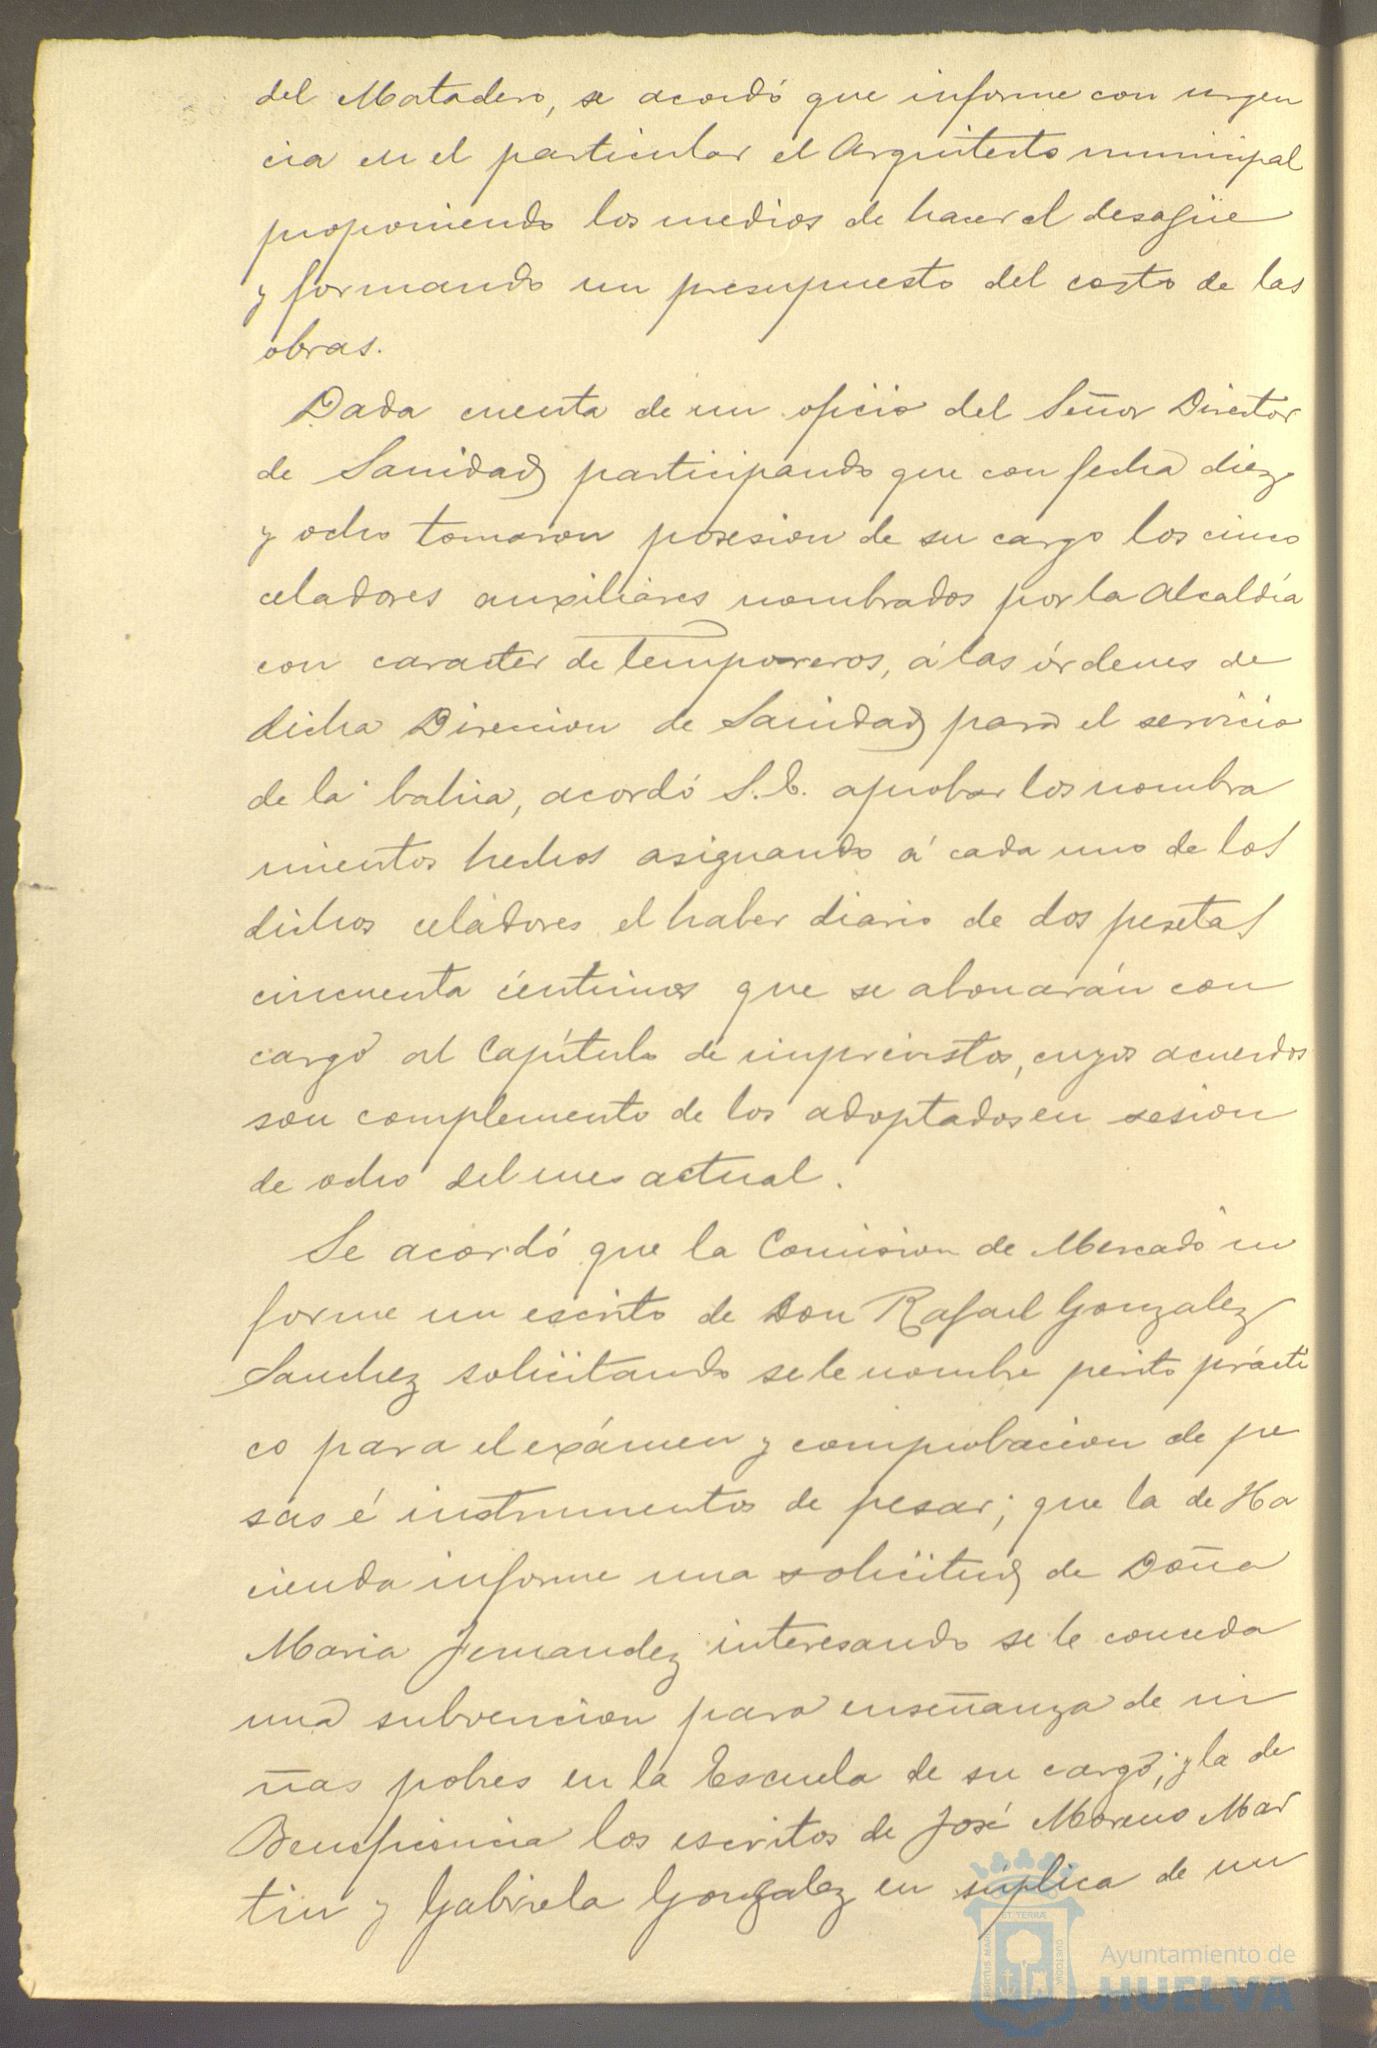 del Matadero, se acordó que informe con urgen
cia en el particular el Arquitecto municipal
proponiendo los medios de hacer el desagüe
y formando un presupuesto del costo de las
obras.
Dada cuenta de un oficio del Señor Director
de Sanidad participando que con fecha diez
y ocho tomaron posesion de su cargo los cinco
celadores auxiliares nombrados por la Alcaldía
con caracter de temporeros, á las órdenes de
dicha Direccion de Sanidad para el servicio
de la bahia, acordó S.E. aprobar los nombra
mientos hechos asignando á cada uno de los
dichos celadores el haber diario de dos pesetas
cincuenta céntimos que se abonarán con
cargo al Capítulo de imprevistos, cuyos acuerdos
son complemento de los adoptados en sesion
de ocho del mes actual.
Se acordó que la Comision de Mercado in
forme un escrito de Don Rafael Gonzalez
Sanchez solicitando se le nombre perito prácti
co para el exámen y comprobacion de pe
sas é instrumentos de pesar; que la de Ha
cienda informe una solicitud de Doña
Maria Fernandez interesando se le conceda
una subvencion para enseñanza de ni
ñas pobres en la Escuela de su cargo; y la de
Beneficencia los escritos de José Moreno Mar
tin y Gabriela Gonzalez en súplica de un
Ayuntamiento de
HUELVA